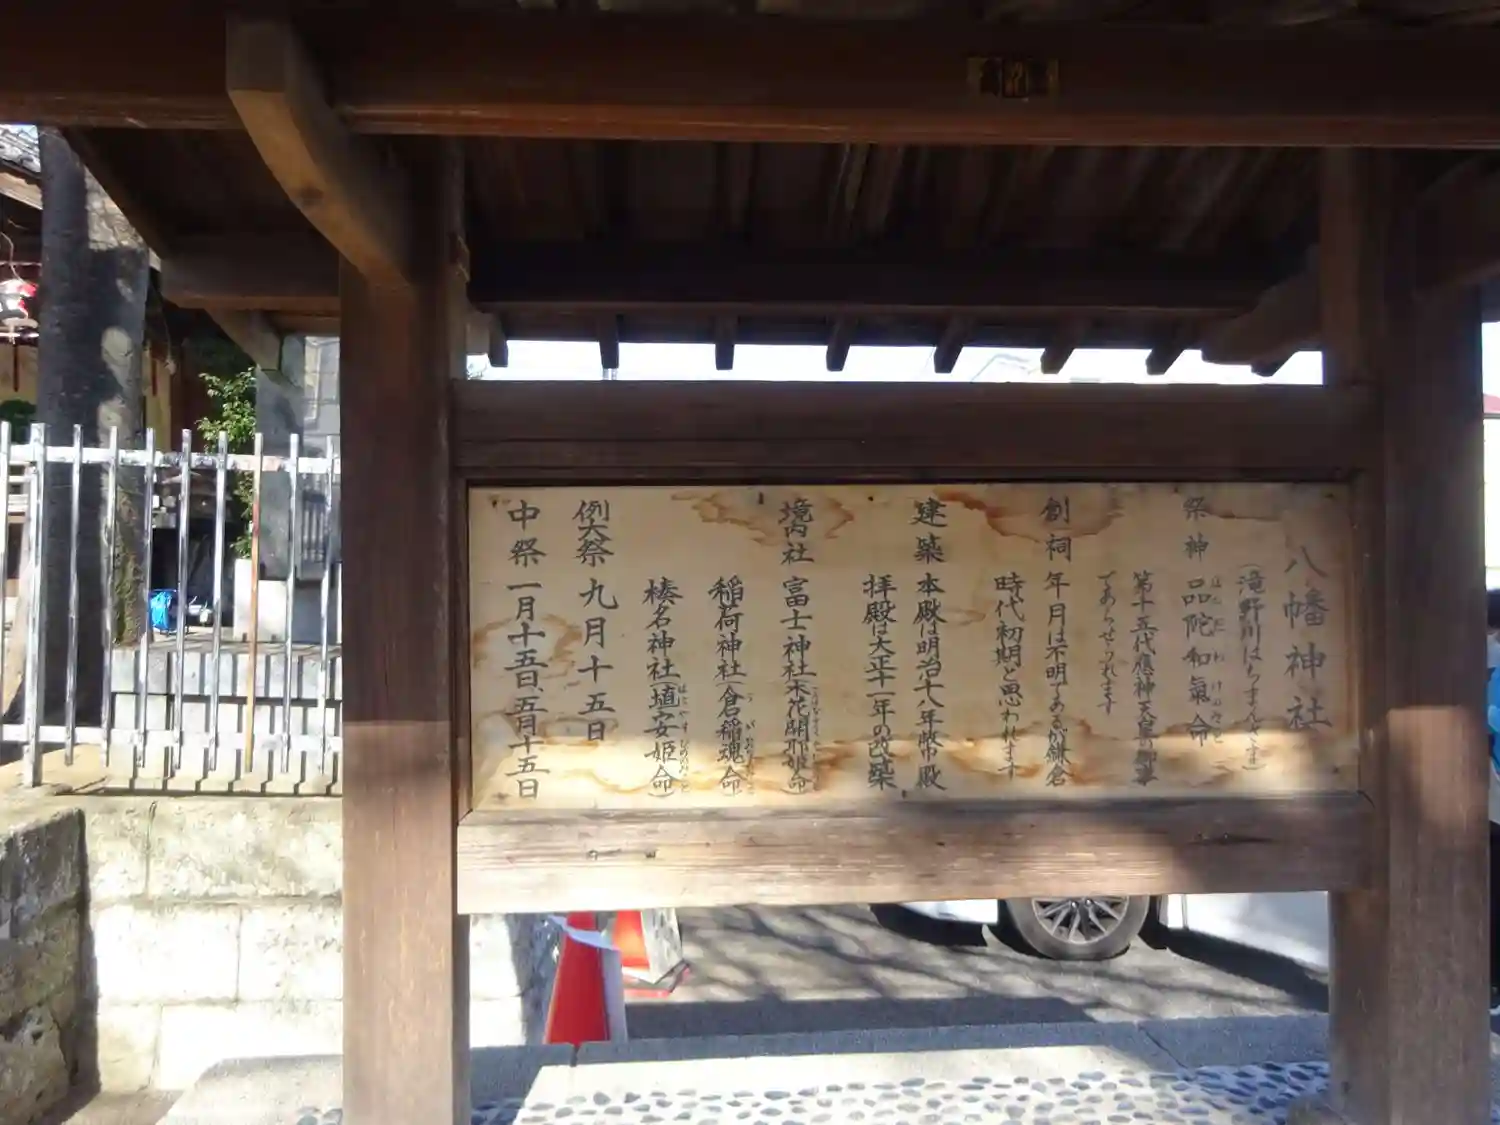 八幡神社
(滝野川はちまんさま)
祭神 品陀和氣命
第十五代應神天皇の御事
であらせられます
創祠 年月は不明であるが鎌倉
時代初期と思われます
建築 本殿は明治十八年幣殿
拝殿は大正十一年の改築
境内社 富士神社(木花開耶姫命)
稲荷神社(倉稲魂命)
榛名神社(埴安姫命)
例大祭 九月十五日
中祭 一月十五日、五月十五日